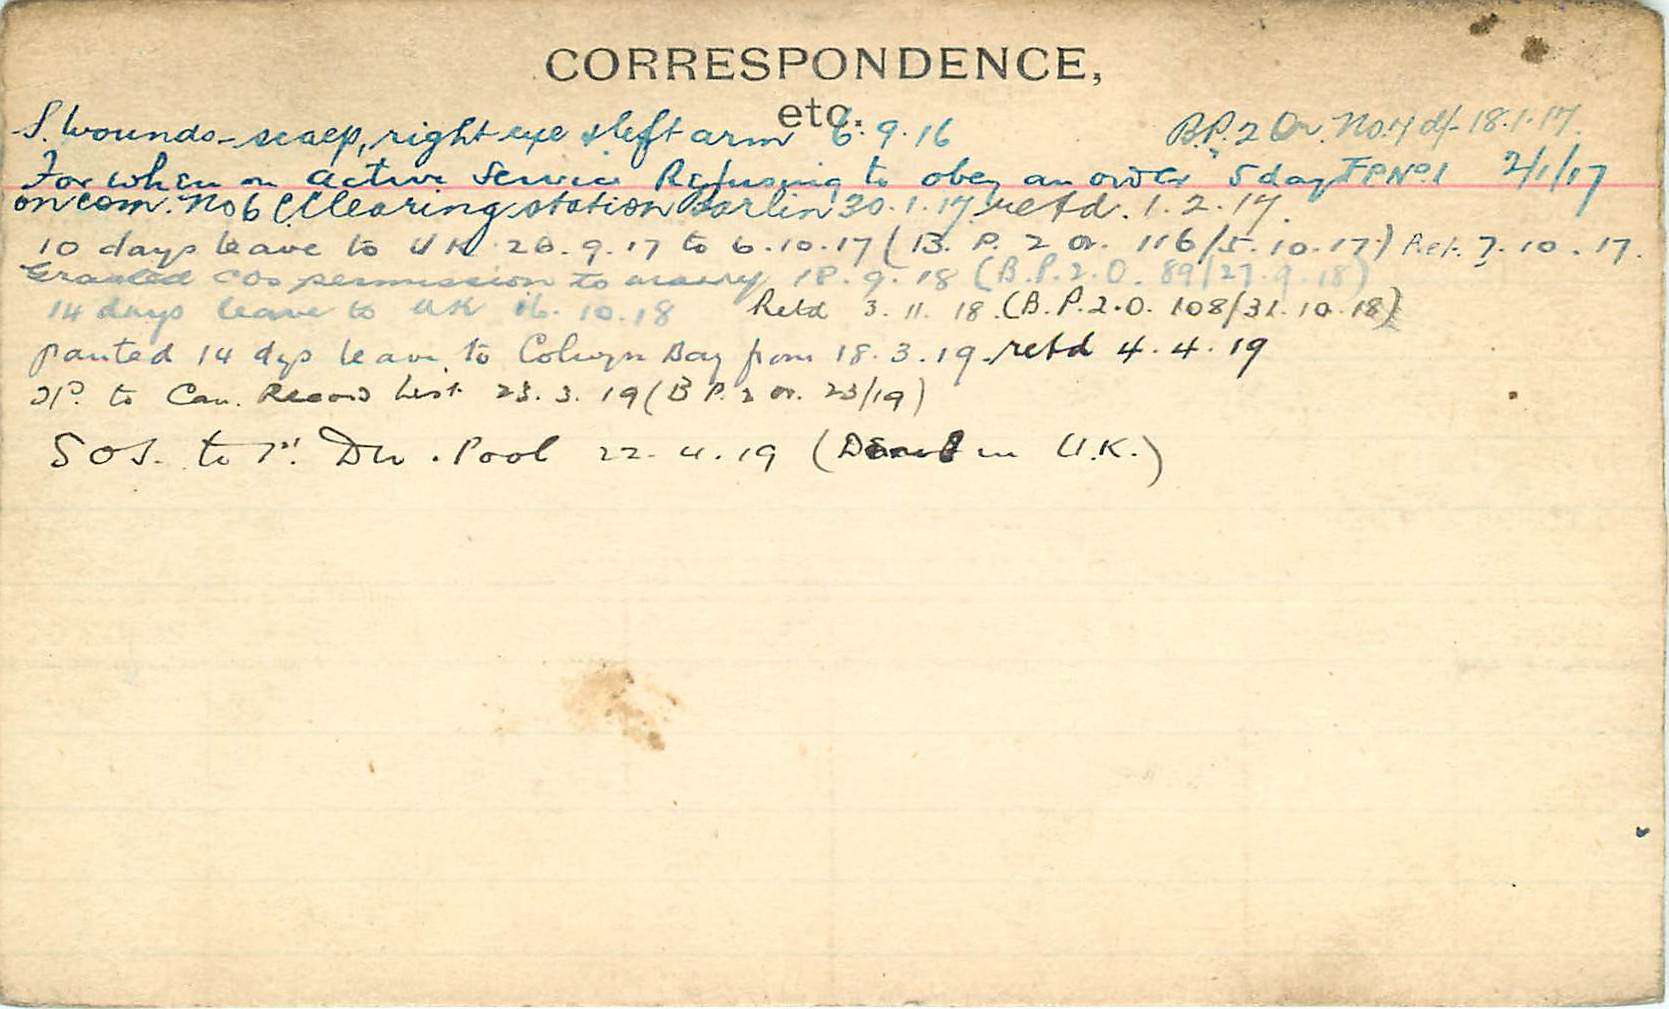 CORRESPONDENCE,
etc.
S. wounds - scalp, right eye & left arm 6.9.16 B.P.2 Or. No.4 d/- 18.1.17.
For when on active service Refusing to obey an order" 5 days FP No1 2/1/17
on com. No 6 C Clearing station 30.1.17 retd. 1.2.17.
10 days leave to UK 26.9.17 to 6.10.17 (B.P. 2 or. 116/5.10.17) Ret. 7.10.17.
Granted COs permission to marry 18.9.18 (B.P.2.O. 89/27.9.18)
14 days leave to UK 16.10.18 Retd 3.11.18. (B.P.2.O. 108/31.10.18)
granted 14 dys leave to Colwyn Bay from 18.3.19. retd 4.4.19
to Can. Record List 23.3.19 (B P. 2 or. 23/19)
SOS. to Div. Pool 22.4.19 (in U.K.)